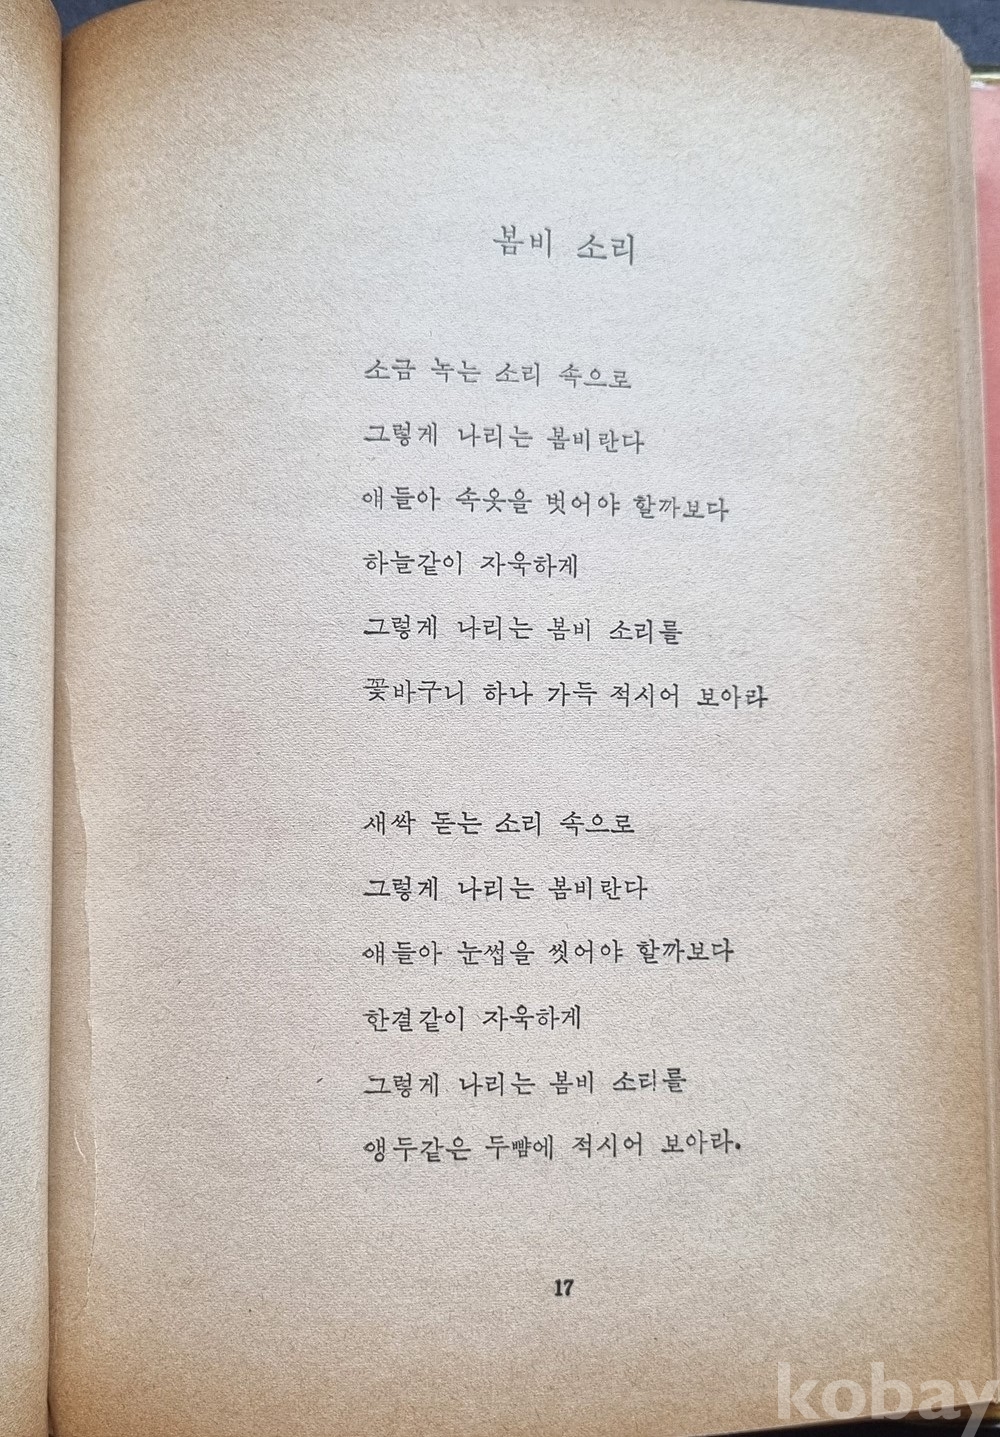 봄비 소리
소금 녹는 소리 속으로
그렇게 나리는 봄비란다
얘들아 속옷을 벗어야 할까보다
하늘같이 자욱하게
그렇게 나리는 봄비 소리를
꽃바구니 하나 가득 적시어 보아라
새싹 돋는 소리 속으로
그렇게 나리는 봄비란다
얘들아 눈썹을 씻어야 할까보다
한결같이 자욱하게
그렇게 나리는 봄비 소리를
앵두같은 두뺨에 적시어 보아라.
17
kobay